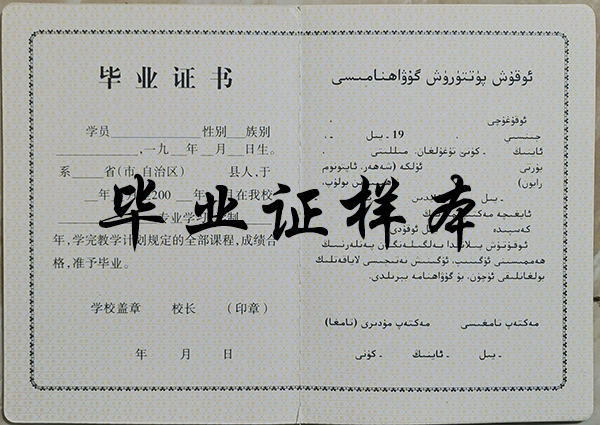 毕业证书
学员____________性别__族别
________,一九__年__月__日生。
系____省(市、自治区) 县人,于
年 200 年 月在我校
专业学习 制
年,学完教学计划规定的全部课程,成绩合
格,准予毕业。
学校盖章 校长 (印章)
年 月 日
毕业证样本
ئوقۇش پۈتتۈرۈش گۇۋاھنامىسى
ئوقۇغۇچى .
جىنسىي . 19 ـ يىل .
ئاينىڭ ـ كۈنى تۇغۇلغان. مىللىتى .
يۇرتى ئۆلكە (شەھەر، ئاپتونوم
رايون) بولۇپ،
ـ يىل
ئايغىچە
كەسىپىدە ئوقۇدى.
ئوقۇتۇش پىلانىدا بەلگىلەنگەن پەنلەرنىڭ
ھەممىسىنى ئۆگىنىپ، ئۆگىنىش نەتىجىسى لاياقەتلىك
بولغانلىقى ئۈچۈن، بۇ گۇۋاھنامە بېرىلدى.
مەكتەپ تامغىسى مەكتەپ مۇدىرى (تامغا)
ـ يىل ـ ئاينىڭ ـ كۈنى